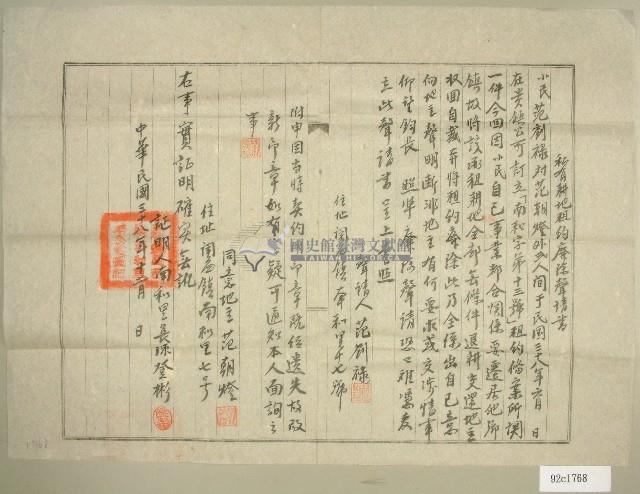 私有耕地租約廢除聲請書
小民范創祿對范朝燈外 人間于民國三十八年六月 日
在貴鎮公所訂立「南和字第十三號」租約備案所關
一件今回因小民自己事業都合關係要遷居他鄉
鎮故將該承租耕地全部無條件退耕交還地主
收回自裁并將租約廢除此乃全係出自己意
向地主聲明斷非地主有何要求或交涉情事
仰望鈞長 照准廢除聲請恐口難憑爰
立此聲請書 呈上 照
聲請人 范創祿
住址 關西鎮南和里十七號
附申因當時契約 印章既經遺失故改
新印章如有 疑可通知本人面詢之
事
同意地主 范朝燈
住址 關西鎮南和里七号
右事實証明確實無訛
証明人南和里長 登彬
中華民國三十八年十二月 日
國史館臺灣文獻館
TAIWAN HISTORICA
1768
92c1768